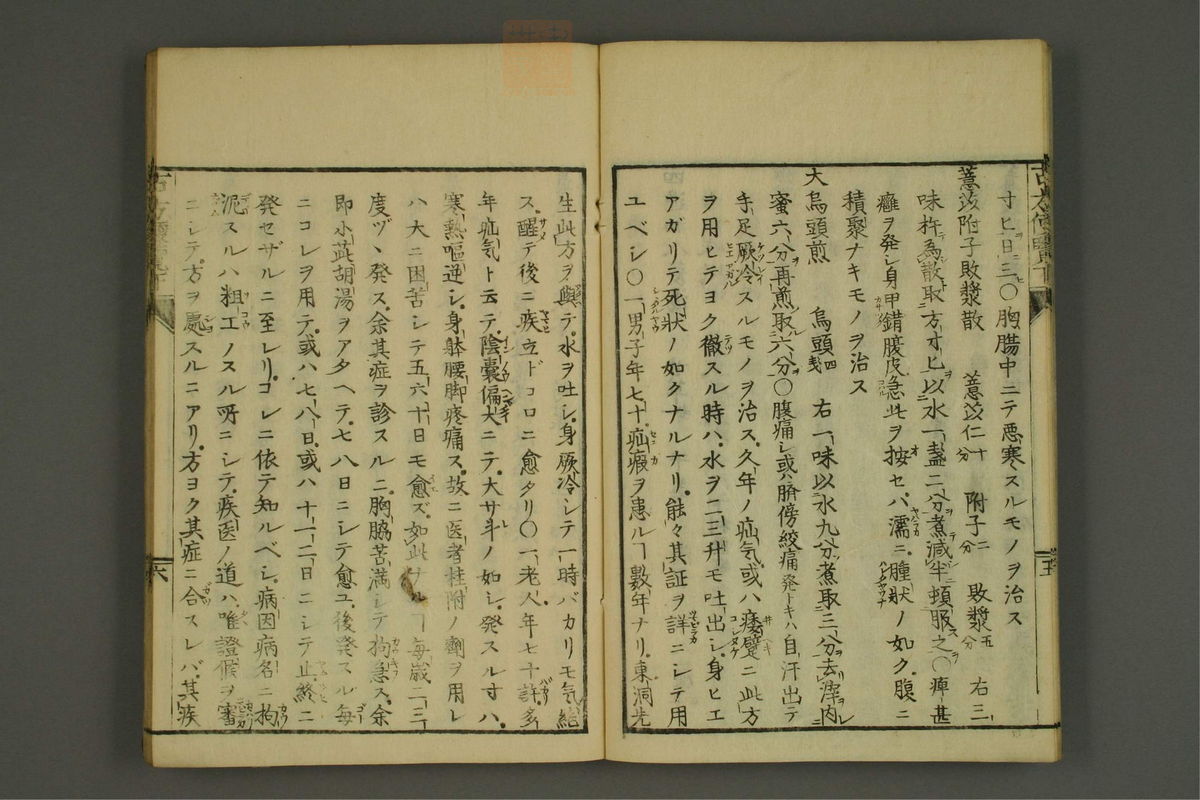 寸ヒ日三〇胸腸中ニテ悪寒スルモノヲ治ス
薏苡附子敗漿散 薏苡仁十分 附子二分 敗漿五分 右三
味杵為散取方寸ヒ以水一盞二分煮減半頓服之〇痺甚
癰ヲ発シ身甲錯腹皮急此ヲ按セバ濡ニ腫状ノ如ク腹ニ
積聚ナキモノヲ治ス
大烏頭煎 烏頭四戔 右一味以水九分煮取三分去滓内
蜜六分再煎取六分〇腹痛シ或ハ臍傍絞痛発トキハ自汗出テ
手足厥冷スルモノヲ治ス久年ノ疝気或ハ痿躄ニ此方
ヲ用ヒテヨク徹スル時ハ水ヲ二三升モ吐出シ身ヒエ
アガリテ死状ノ如クナルナリ能々其証ヲ詳ニシテ用
ユベシ〇一男子年七十疝瘕ヲ患ルヿ数年ナリ東洞先
生此方ヲ與テ水ヲ吐シ身厥冷シテ一時バカリモ気絶
ス醒テ後ニ疾立ドコロニ愈タリ〇一老人年七十許多
年疝気ト云テ陰嚢偏大ニテ大サ斗ノ如シ発スル寸ハ
寒熱嘔逆シ身躰腰脚疼痛ス故ニ医者桂附ノ劑ヲ用レ
ハ大ニ困苦シテ五六十日モ愈ズ如此ナルヿ毎歳二三
度ヅヽ発ス余其症ヲ診スルニ胸脇苦満シテ拘急ス余
即小茈胡湯ヲアタヘテ七八日ニシテ愈ユ後発スル毎
ニコレヲ用テ或ハ七八日或ハ十一二日ニシテ止終ニ
発セザルニ至レリコレニ依テ知ルベシ病因病名ニ拘
泥スルハ粗工ノスル所ニシテ疾医ノ道ハ唯證候ヲ審
ニシテ方ヲ處スルニアリ方ヨク其症ニ合スレバ其疾
五
六